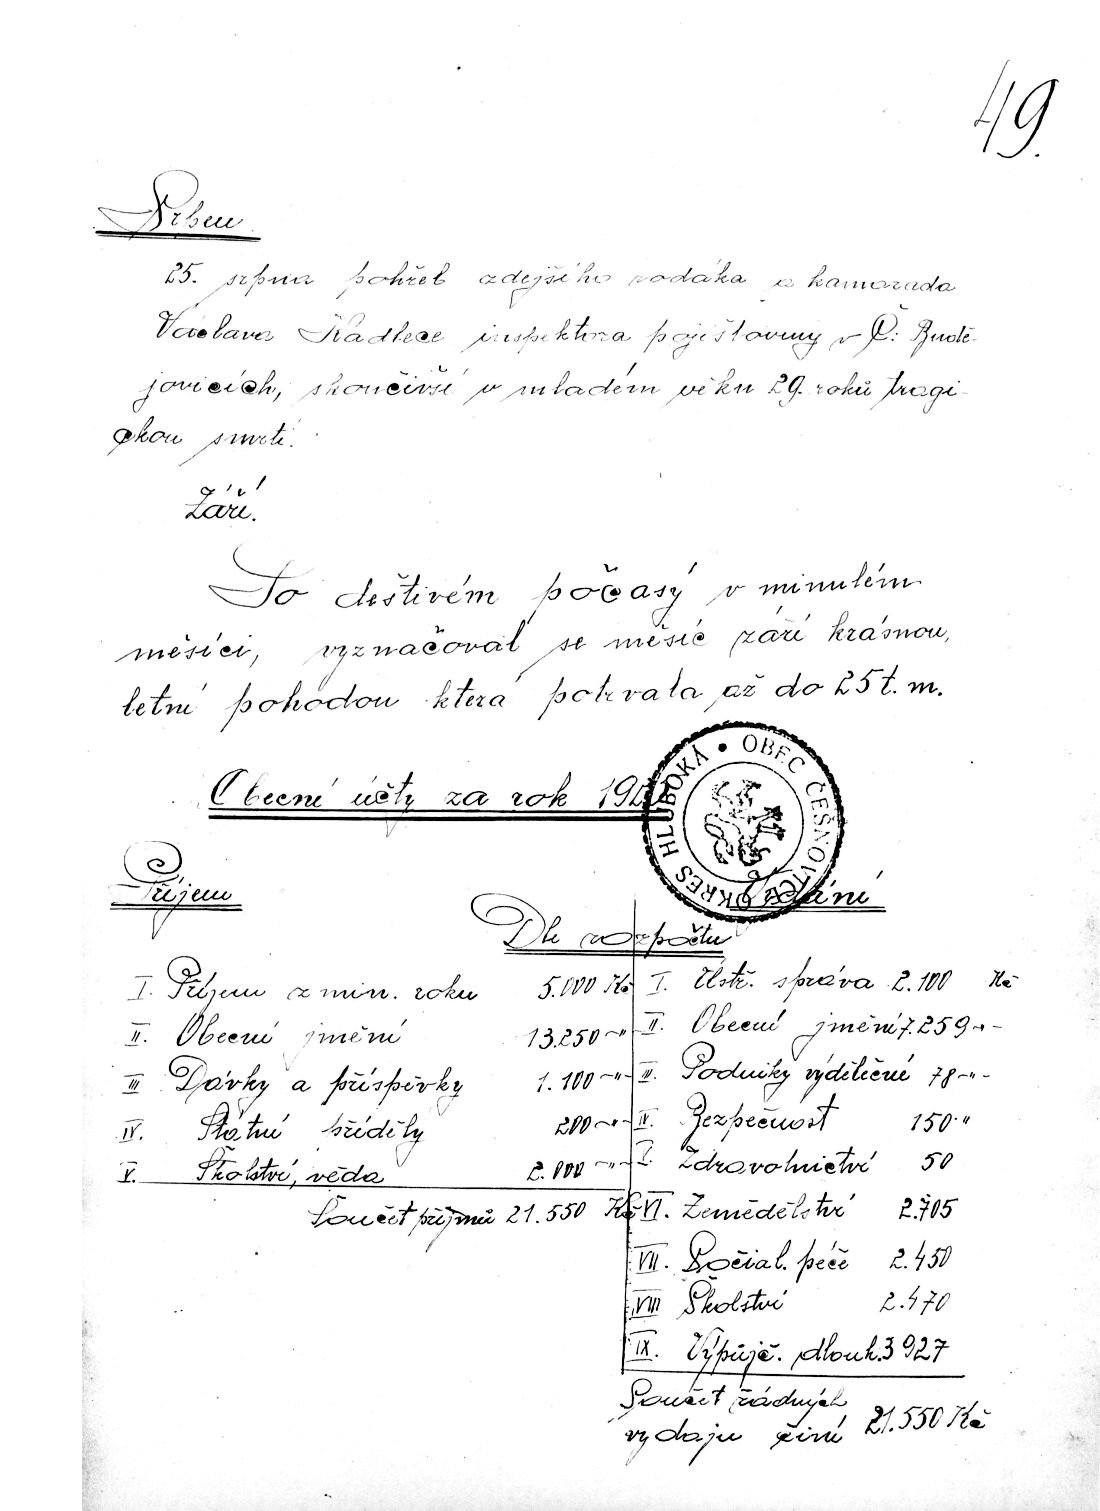 49.
Srpen
25. srpna pohřeb zdejšího rodáka a kamarada
Václava Kadlece inspektora pojištovny v Č: Budě-
jovicích, skončivší v mladém věku 29. roků tragi-
ckou smrti.
Září.
Po deštivém počasý v minulém
měsíci, vyznačoval se měsíc září krásnou,
letní pohodou která potrvala až do 25 t. m.
OBEC ČEŠNOVICE OKRES HLUBOKÁ
Obecní účty za rok
Příjem
Vydání
Dle rozpočtu
I. Příjem z min. roku 5.000 Kč
II. Obecní jmění 13.250 -"-
III Dávky a příspěvky 1.100 -"-
IV. Státní příděly 200 -"-
V. Školství, věda 2.000 -"-
Součet příjmů 21.550 Kč
I. Ústř. správa 2.100 Kč
II. Obecní jmění 7.259 -"-
III. Podniky výdělečné 78 -"-
IV. Bezpečnost 150 -"
V. Zdravotnictví 50
VI. Zemědělství 2.705
VII. Sociál. péče 2.450
VIII Školství 2.470
IX. Výpůjč. dlouh. 3 927
Součet řádných
vydaju činí 21.550 Kč